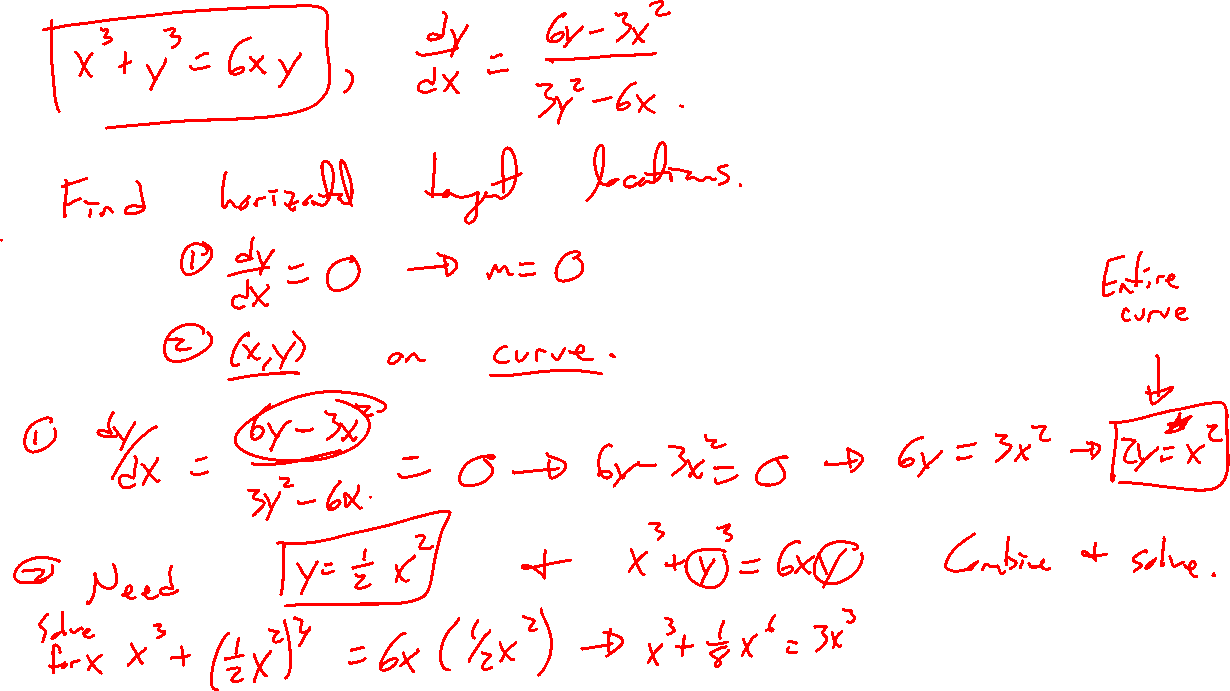 x³ + y³ = 6xy, dy/dx = (6y - 3x²)/(3y² - 6x).
Find horizontal tangent locations.
① dy/dx = 0 → m = 0
② (x,y) on curve.
Entire
curve
↓
① dy/dx = (6y - 3x²)/(3y² - 6x) = 0 → 6y - 3x² = 0 → 6y = 3x² → 2y = x²
② Need y = 1/2 x² + x³ + y³ = 6xy Combine + solve.
Solve
for x x³ + (1/2 x²)³ = 6x (1/2 x²) → x³ + 1/8 x⁶ = 3x³